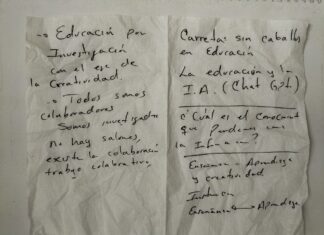 → Educación por
Investigación
con el eje de
la Creatividad.
→ Todos somos
colaboradores
Somos investigador
no hay salones,
existe la colaboración
trabajo colaborativo
Carretas sin caballos
en Educación
La educación y la
I.A. (Chat GPT.)
¿Cuál es el
que perdemos con
la
Enseñanza - Aprendizaje
y creatividad
Enseñanza → Aprendizaje